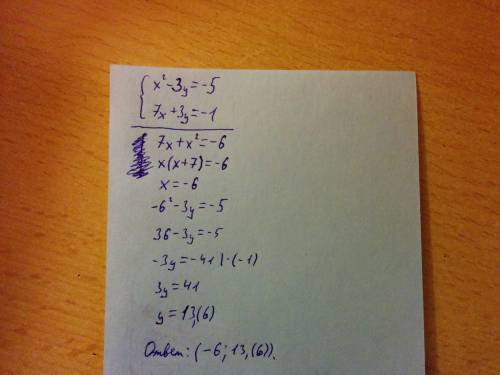 { x² - 3y = -5
7x + 3y = -1
7x + x² = -6
x(x+7) = -6
x = -6
-6² - 3y = -5
36 - 3y = -5
-3y = -41 | · (-1)
3y = 41
y = 13,(6)
Ответ: (-6; 13,(6)).